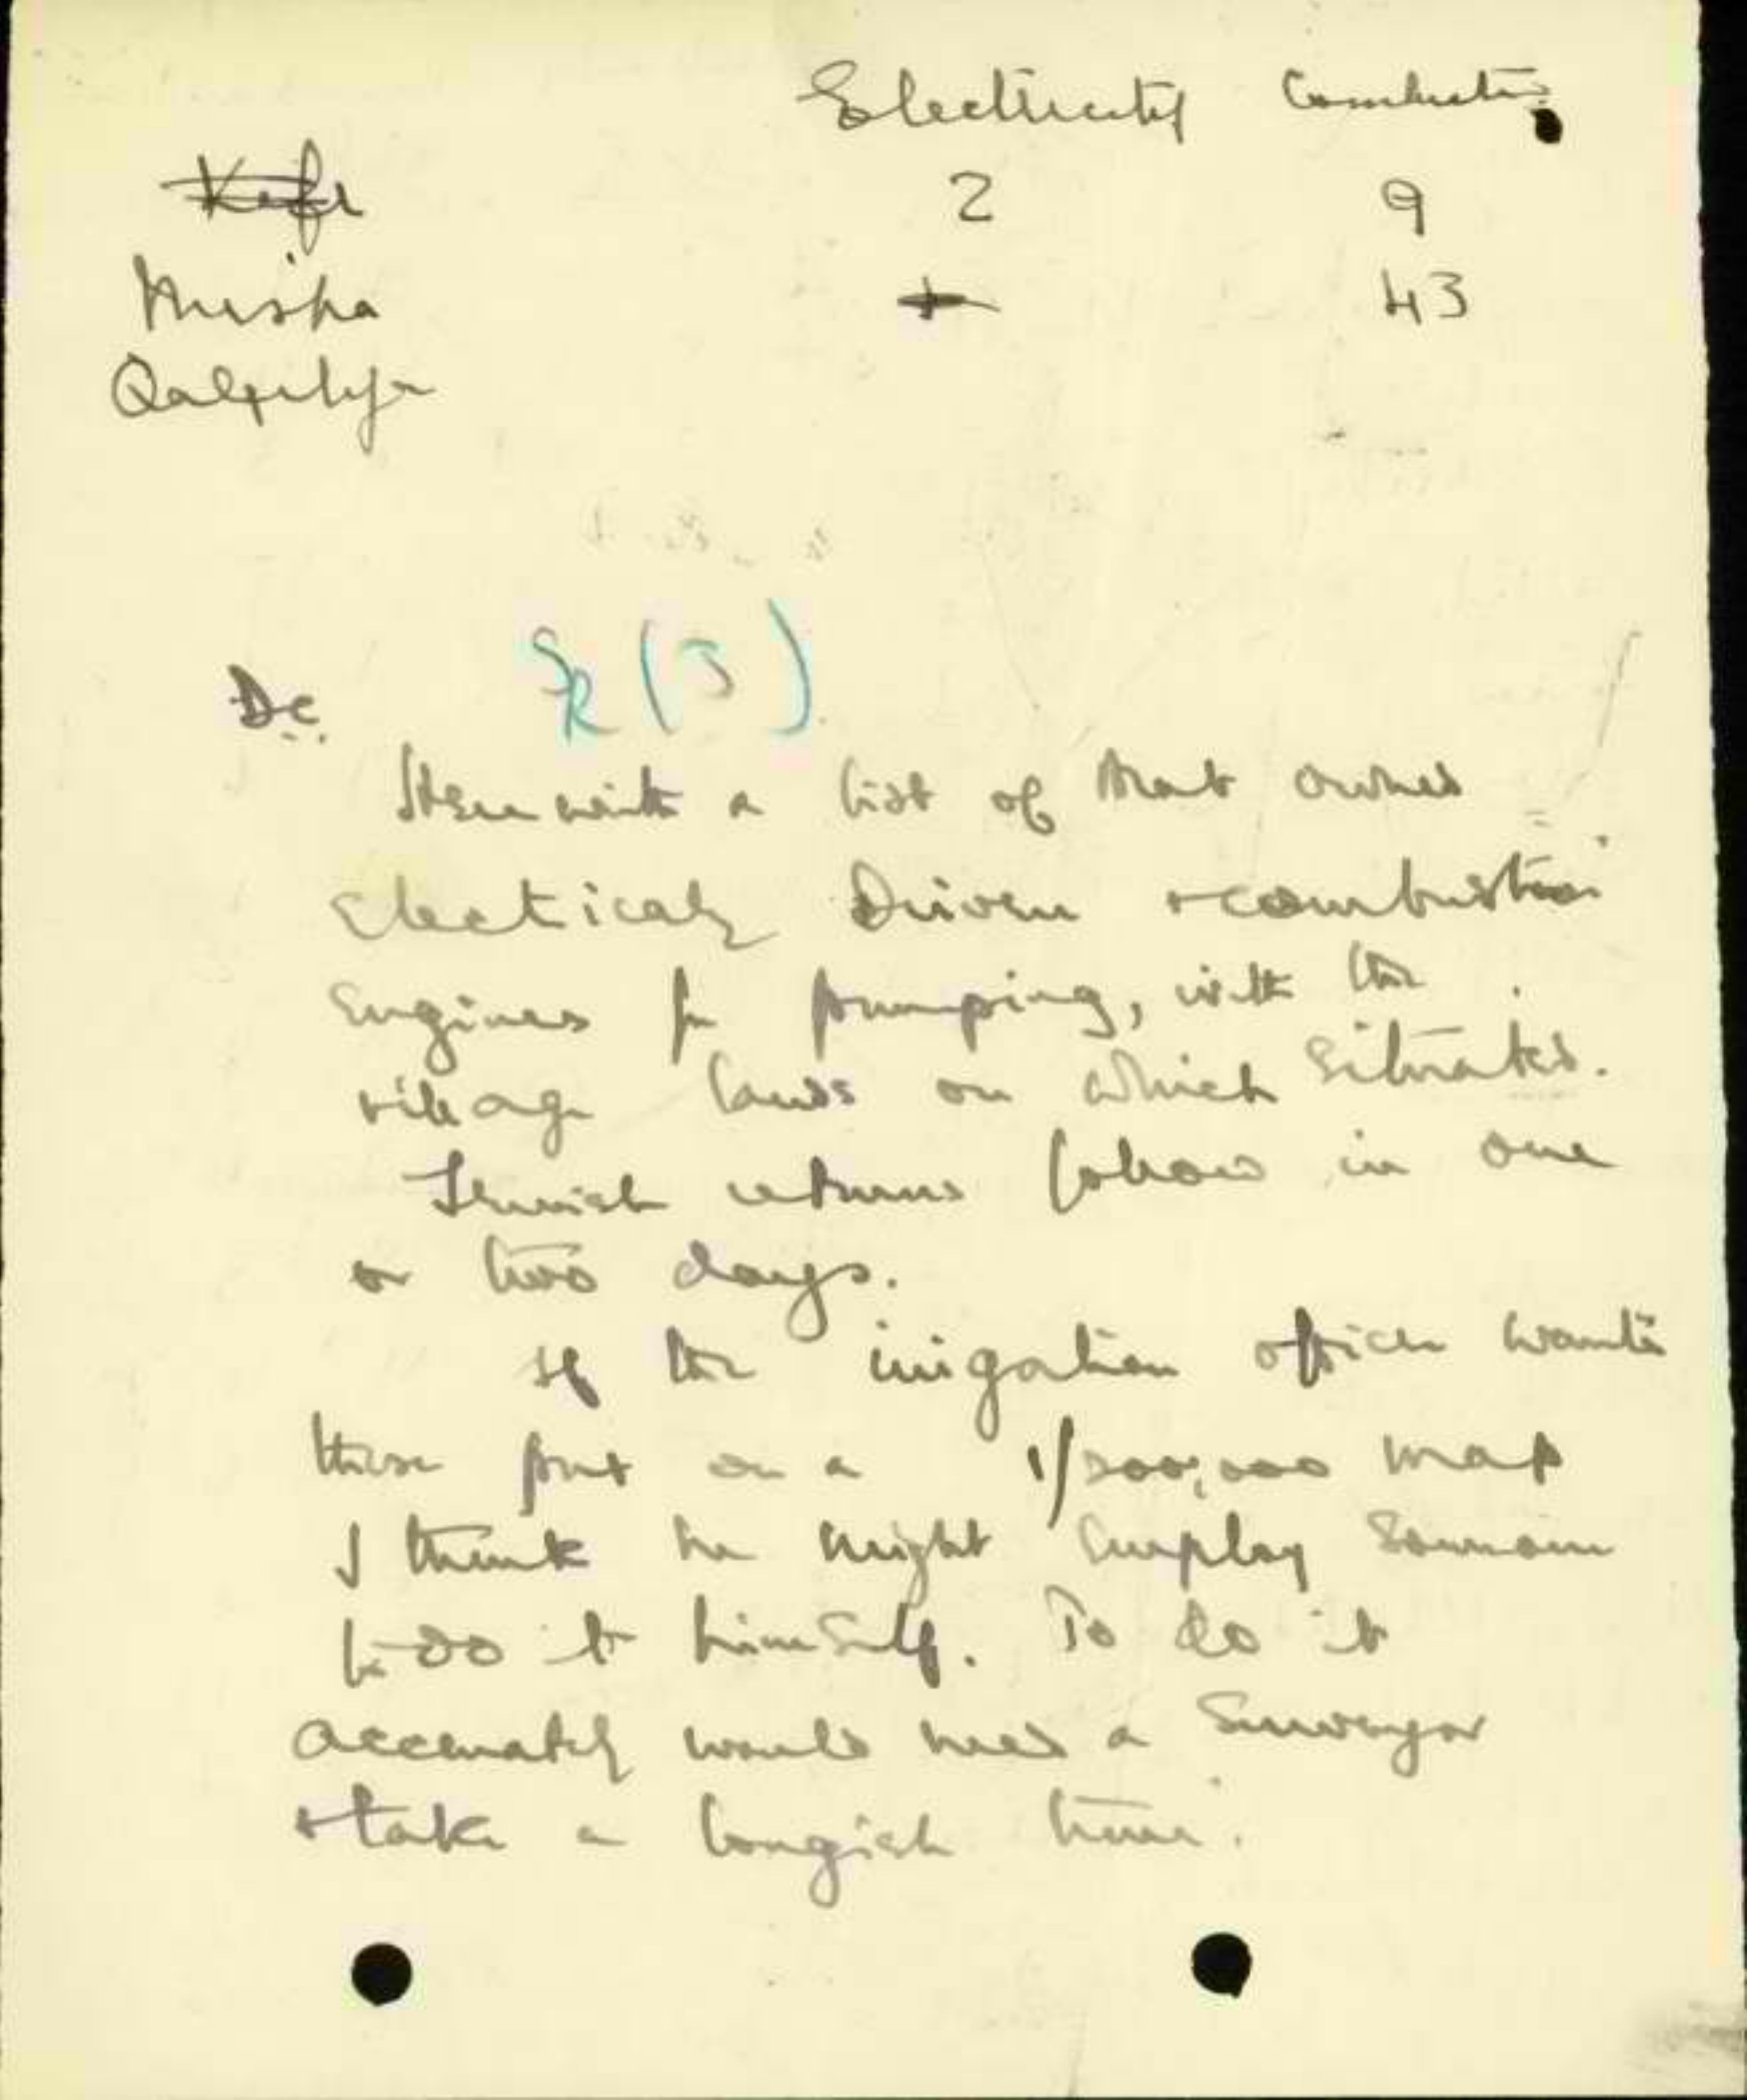 Electricity Combustion
Kefr 2 9
Miska 43
Qalqilya
D.C.
Herewith a list of Arab owned
electrically Driven & combustion
Engines for pumping, with the
village lands on which situated.
Jewish returns follow in one
or two days.
If the irrigation officer wants
these put on a 1/200,000 map
I think he might employ someone
to do it himself. To do it
accurately would need a Surveyor
& take a longish time.